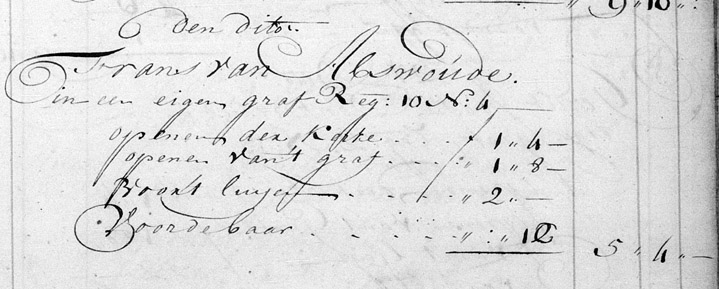 9 „ 10 „
Den dito
Frans van Alswoude.
in een eigen graf Reg: 10 N: 4 —
openen der Kerke . . . ƒ 1 „ 4 —
openen van't graf . . „ 1 „ 8 —
luyen . . . „ 2 „ —
Voor de baar . . . „ : „ 12
5 „ 4 „ —